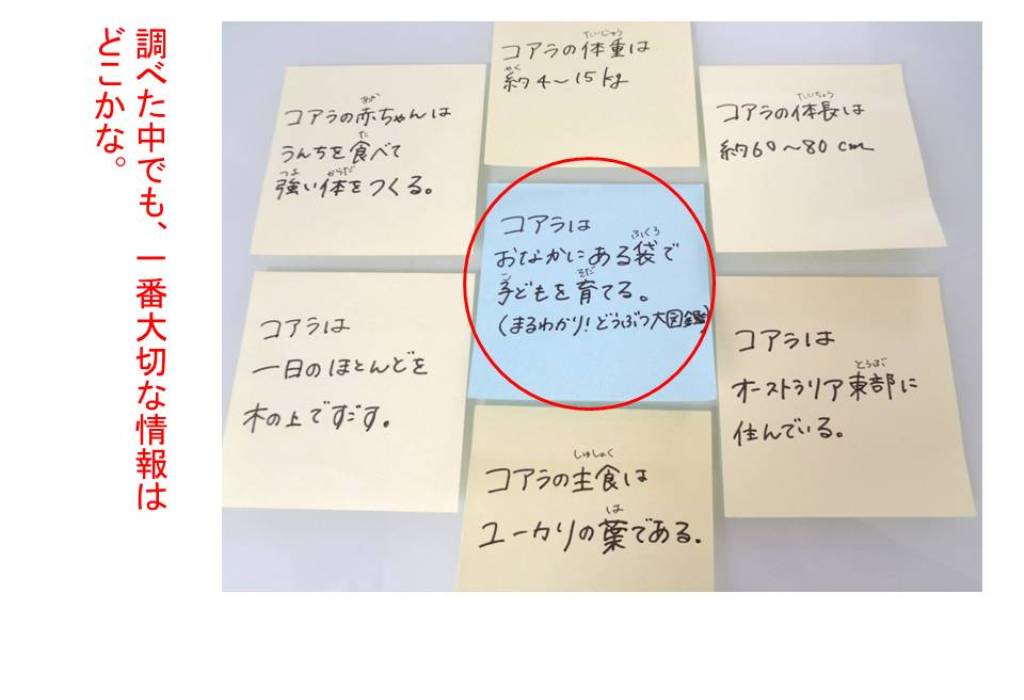 調べた中でも、一番大切な情報は
どこかな。
コアラの体重は
たいじゅう
約4〜15kg
やく
コアラの赤ちゃんは
あか
うんちを食べて
た
強い体をつくる。
つよ からだ
コアラの体長は
たいちょう
約60〜80cm
コアラは
おなかにある袋で
ふくろ
子どもを育てる。
こ そだ
(まるわかり!どうぶつ大図鑑)
コアラは
一日のほとんどを
木の上ですごす。
コアラは
オーストラリア東部に
とうぶ
住んでいる。
コアラの主食は
しゅしょく
ユーカリの葉である。
は